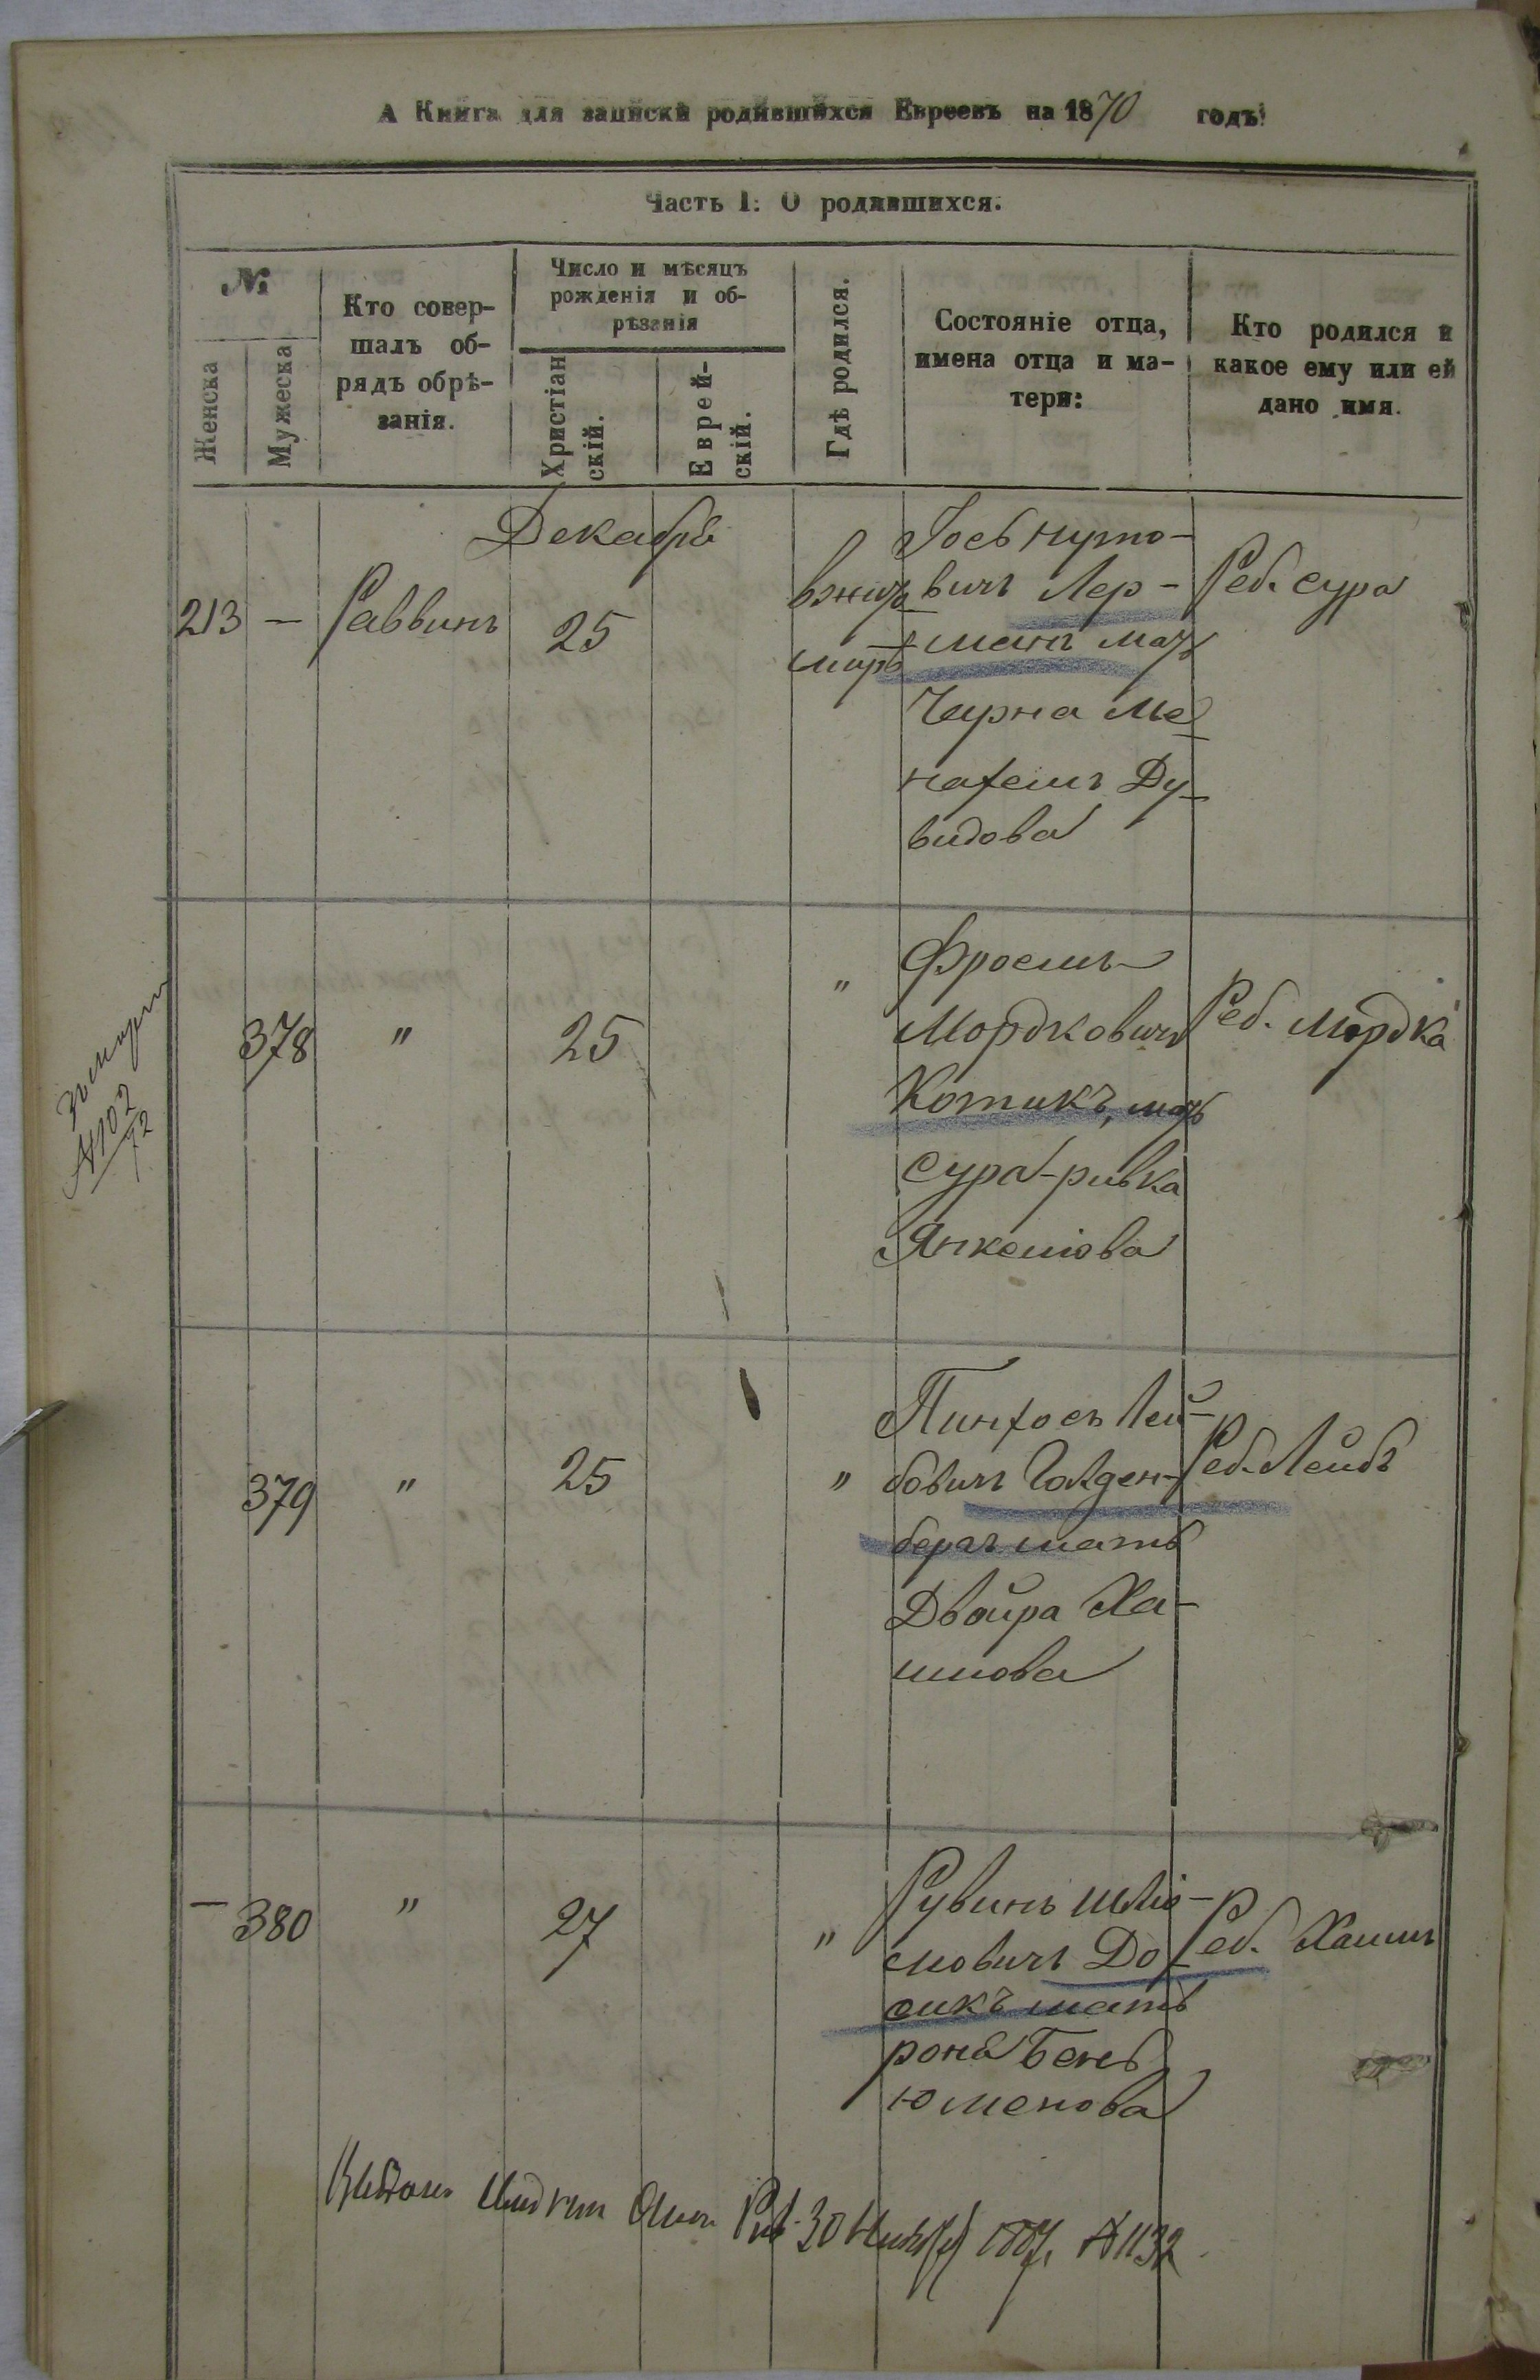 А Книга для записки родившихся Евреевъ на 1870 годъ:
Часть I: О родившихся.
№
Женска
Мужеска
Кто совер-
шалъ об-
рядъ обрѣ-
занія.
Число и мѣсяцъ
рожденія и об-
рѣзанія
Христіан
скій.
Еврей-
скій.
Гдѣ родился.
Состояніе отца,
имена отца и ма-
тери:
Кто родился и
какое ему или ей
дано имя.
Декабрь
213 — Раввинъ 25
Іось Нуто-
вичъ Лер-
манъ мать
Чарна Ме-
нахемъ Ду-
видова
Реб. Сура
378 " 25 "
Фроемъ
Мордковичъ
Котикъ, мать
Сура-ривка
Янкеліова
Реб. Мордка
№ 102
72
379 " 25 "
Пинхосъ Лей-
бовичъ Голден-
бергъ мать
Двойра Ха-
имова
Реб. Лейбъ
— 380 " 27 "
Рувинъ Шліо-
мовичъ До-
сикъ мать
рона Бень
юменова
Реб. Хаимъ
30 № 1132